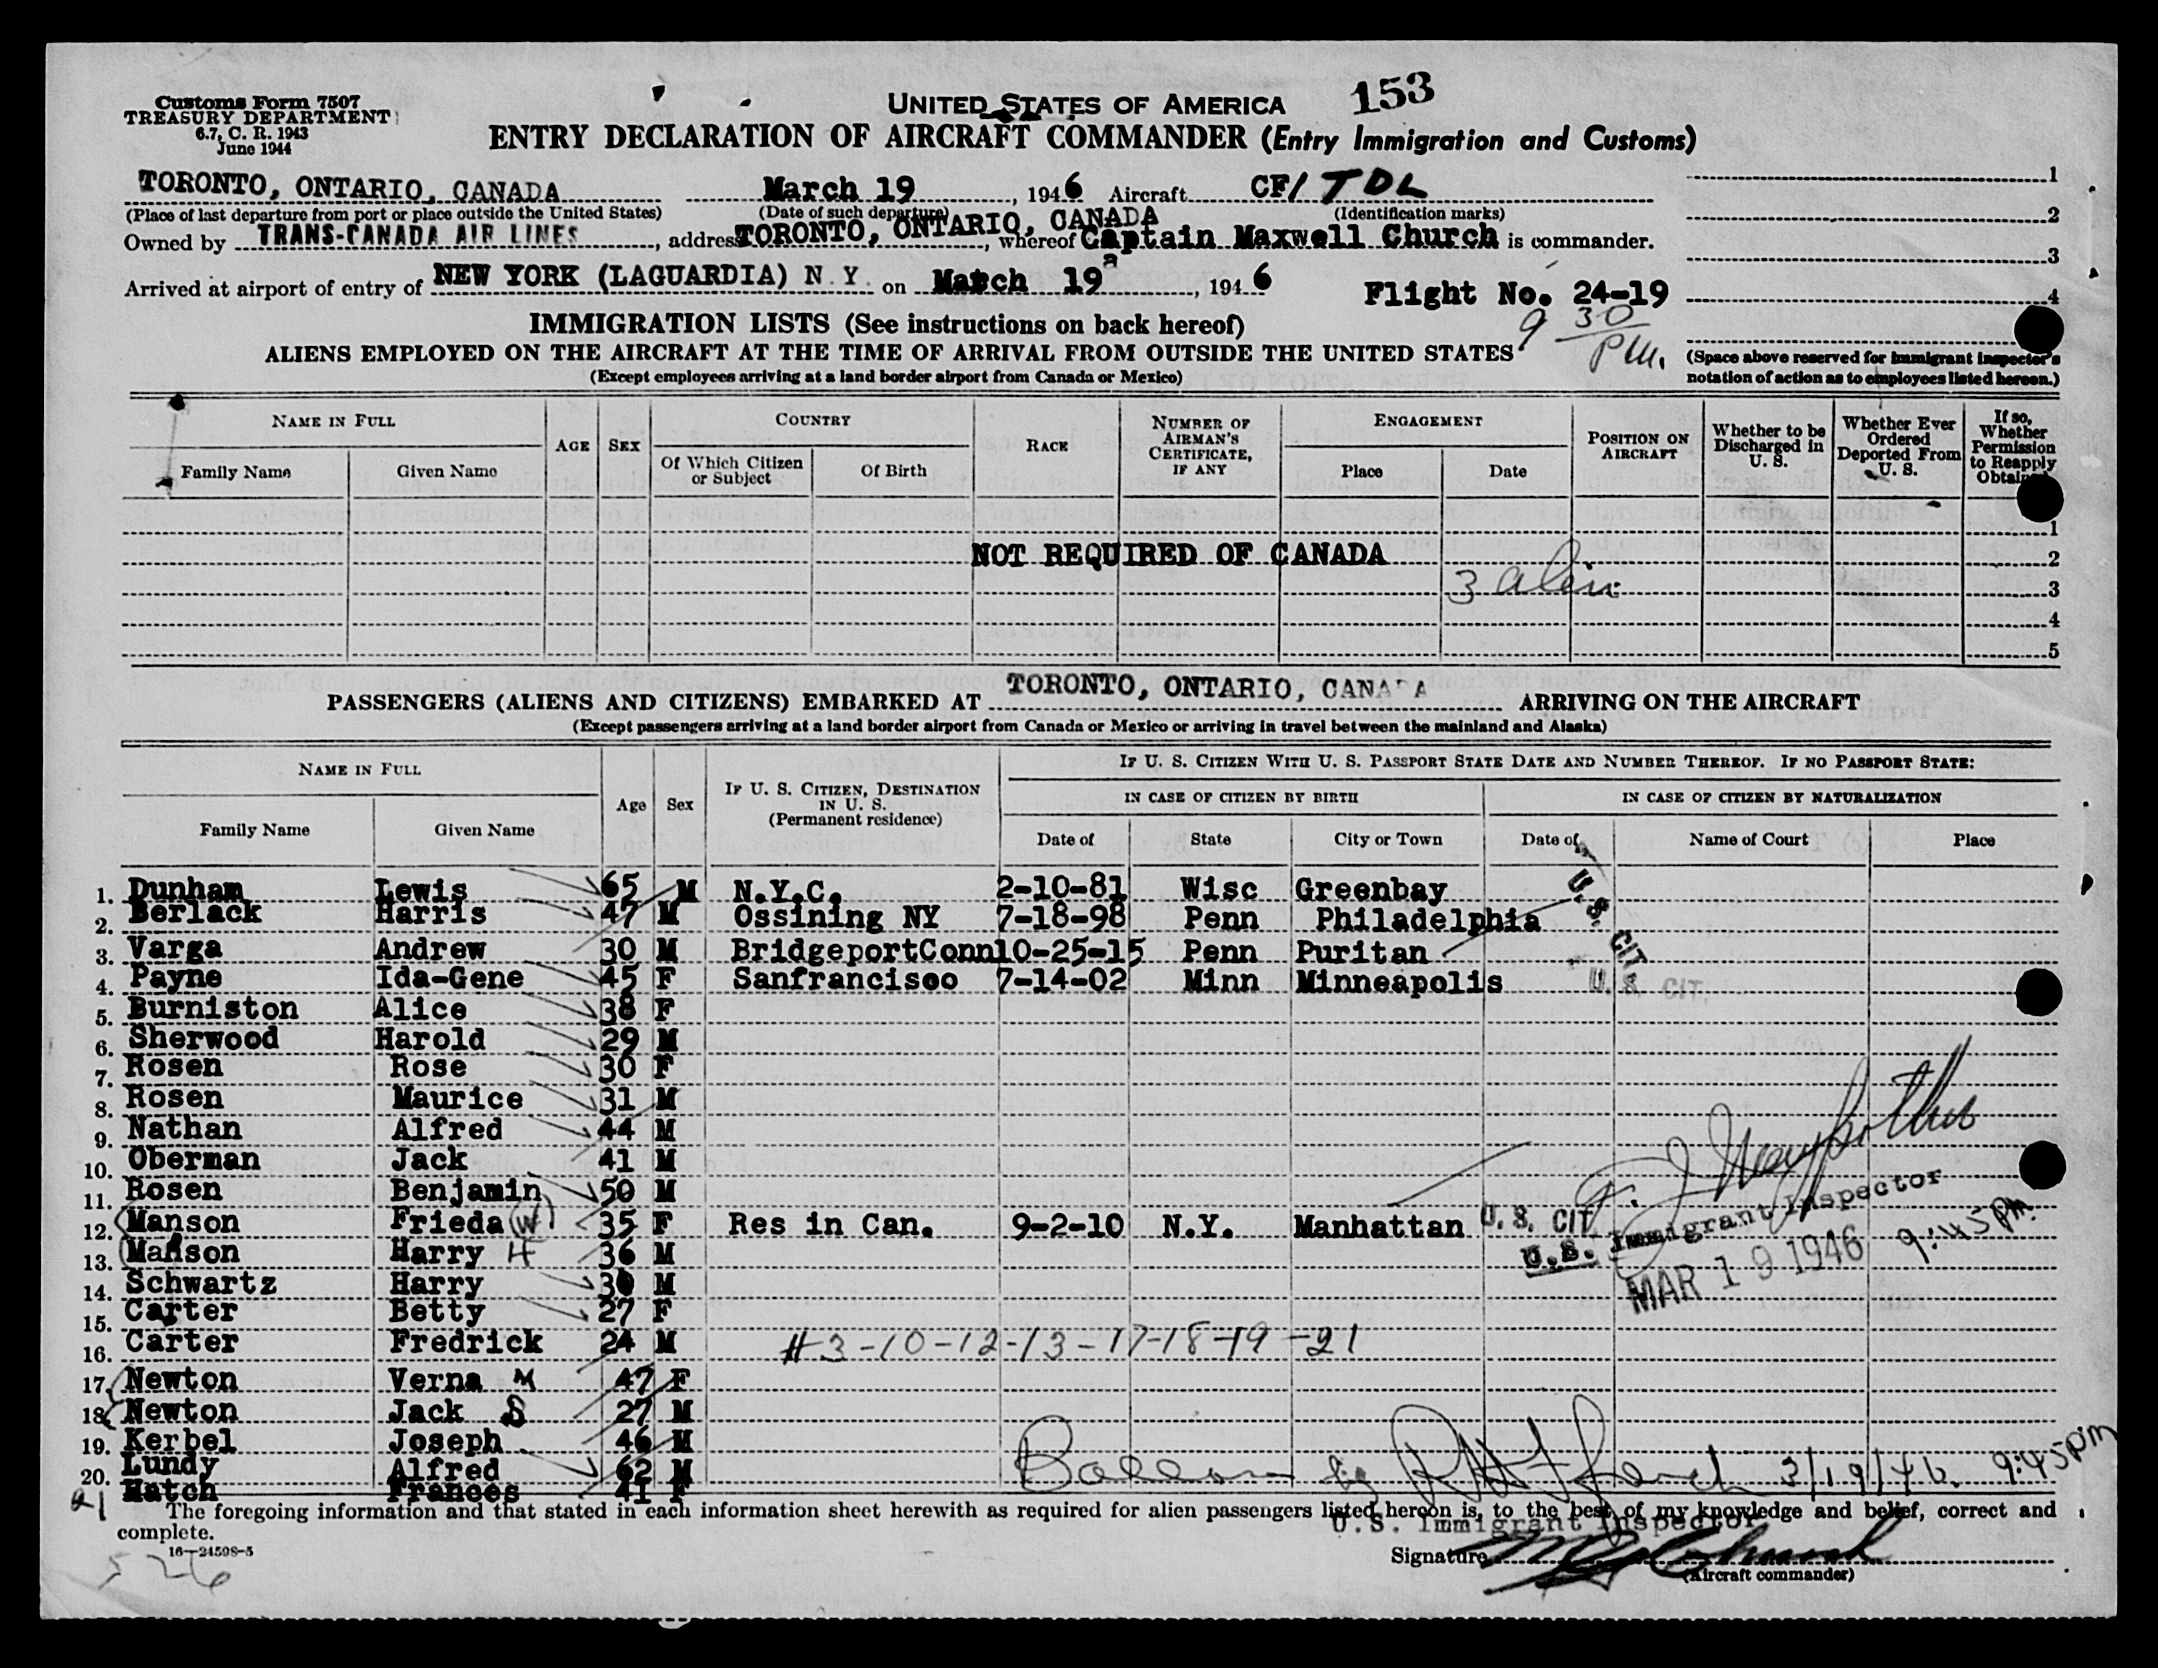 153
Customs Form 7507
TREASURY DEPARTMENT
6.7, C. R. 1943
June 1944
UNITED STATES OF AMERICA
ENTRY DECLARATION OF AIRCRAFT COMMANDER (Entry Immigration and Customs)
TORONTO, ONTARIO, CANADA March 19, 1946 Aircraft CF/TDL
(Place of last departure from port or place outside the United States) (Date of such departure) (Identification marks)
Owned by TRANS-CANADA AIR LINES, address TORONTO, ONTARIO, CANADA, whereof Captain Maxwell Church is commander.
Arrived at airport of entry of NEW YORK (LAGUARDIA) N.Y. on March 19, 1946 Flight No. 24-19
9 30 PM.
1
2
3
4
(Space above reserved for immigrant inspector's notation of action as to employees listed hereon.)
IMMIGRATION LISTS (See instructions on back hereof)
ALIENS EMPLOYED ON THE AIRCRAFT AT THE TIME OF ARRIVAL FROM OUTSIDE THE UNITED STATES
(Except employees arriving at a land border airport from Canada or Mexico)
NAME IN FULL
Family Name Given Name
AGE SEX
COUNTRY
Of Which Citizen or Subject Of Birth
RACE
NUMBER OF AIRMAN'S CERTIFICATE, IF ANY
ENGAGEMENT
Place Date
POSITION ON AIRCRAFT
Whether to be Discharged in U. S.
Whether Ever Ordered Deported From U. S.
If so, Whether Permission to Reapply Obtained
1
NOT REQUIRED OF CANADA 2
3
4
5
PASSENGERS (ALIENS AND CITIZENS) EMBARKED AT TORONTO, ONTARIO, CANADA ARRIVING ON THE AIRCRAFT
(Except passengers arriving at a land border airport from Canada or Mexico or arriving in travel between the mainland and Alaska)
NAME IN FULL
Family Name Given Name
Age Sex
IF U. S. CITIZEN, DESTINATION IN U. S. (Permanent residence)
IF U. S. CITIZEN WITH U. S. PASSPORT STATE DATE AND NUMBER THEREOF. IF NO PASSPORT STATE:
IN CASE OF CITIZEN BY BIRTH IN CASE OF CITIZEN BY NATURALIZATION
Date of State City or Town Date of Name of Court Place
1. Dunham Lewis 65 M N.Y.C. 2-10-81 Wisc Greenbay
2. Berlack Harris 47 M Ossining NY 7-18-98 Penn Philadelphia
U. S. CIT.
3. Varga Andrew 30 M BridgeportConn 10-25-15 Penn Puritan
4. Payne Ida-Gene 45 F Sanfrancisco 7-14-02 Minn Minneapolis U. S. CIT.
5. Burniston Alice 38 F
6. Sherwood Harold 29 M
7. Rosen Rose 30 F
8. Rosen Maurice 31 M
9. Nathan Alfred 44 M
10. Oberman Jack 41 M
11. Rosen Benjamin 50 M
12. Manson Frieda (W) 35 F Res in Can. 9-2-10 N.Y. Manhattan U. S. CIT
U.S. Immigrant Inspector
13. Manson Harry H 36 M
MAR 19 1946 9:45 PM
14. Schwartz Harry 30 M
15. Carter Betty 27 F
16. Carter Fredrick 24 M #3-10-12-13-17-18-19-21
17. Newton Verna M 47 F
18. Newton Jack S 27 M
19. Kerbel Joseph 46 M
20. Lundy Alfred 62 M 3/19/46 9:45 pm
21 Hatch Frances 41 F
The foregoing information and that stated in each information sheet herewith as required for alien passengers listed hereon is, to the best of my knowledge and belief, correct and
complete.
U.S. Immigrant Inspector
16—24598-5
526
Signature
(Aircraft commander)